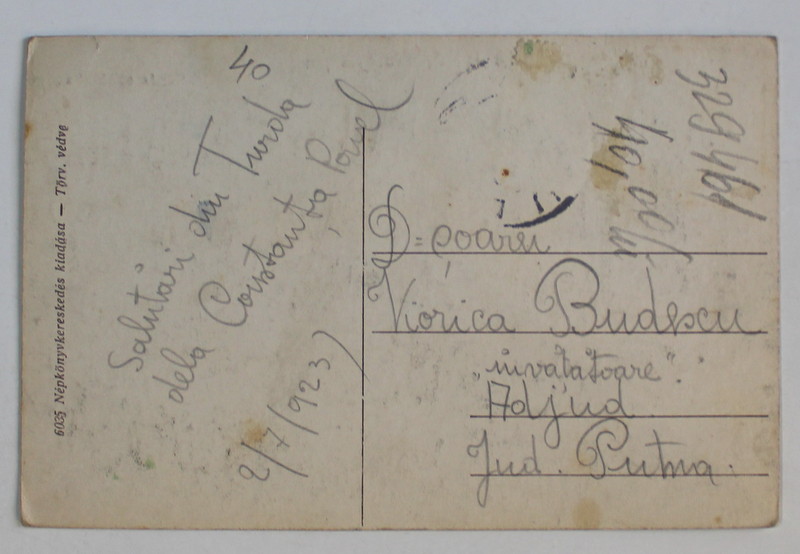 6035 Népkönyvkereskedés kiadása — Törv. védve
40
Salutări din Turda
dela Constanța Pavel
2/7/923
D=șoarei
Viorica Budescu
„invatatoare”.
Adjud
Jud. Putna.
329461